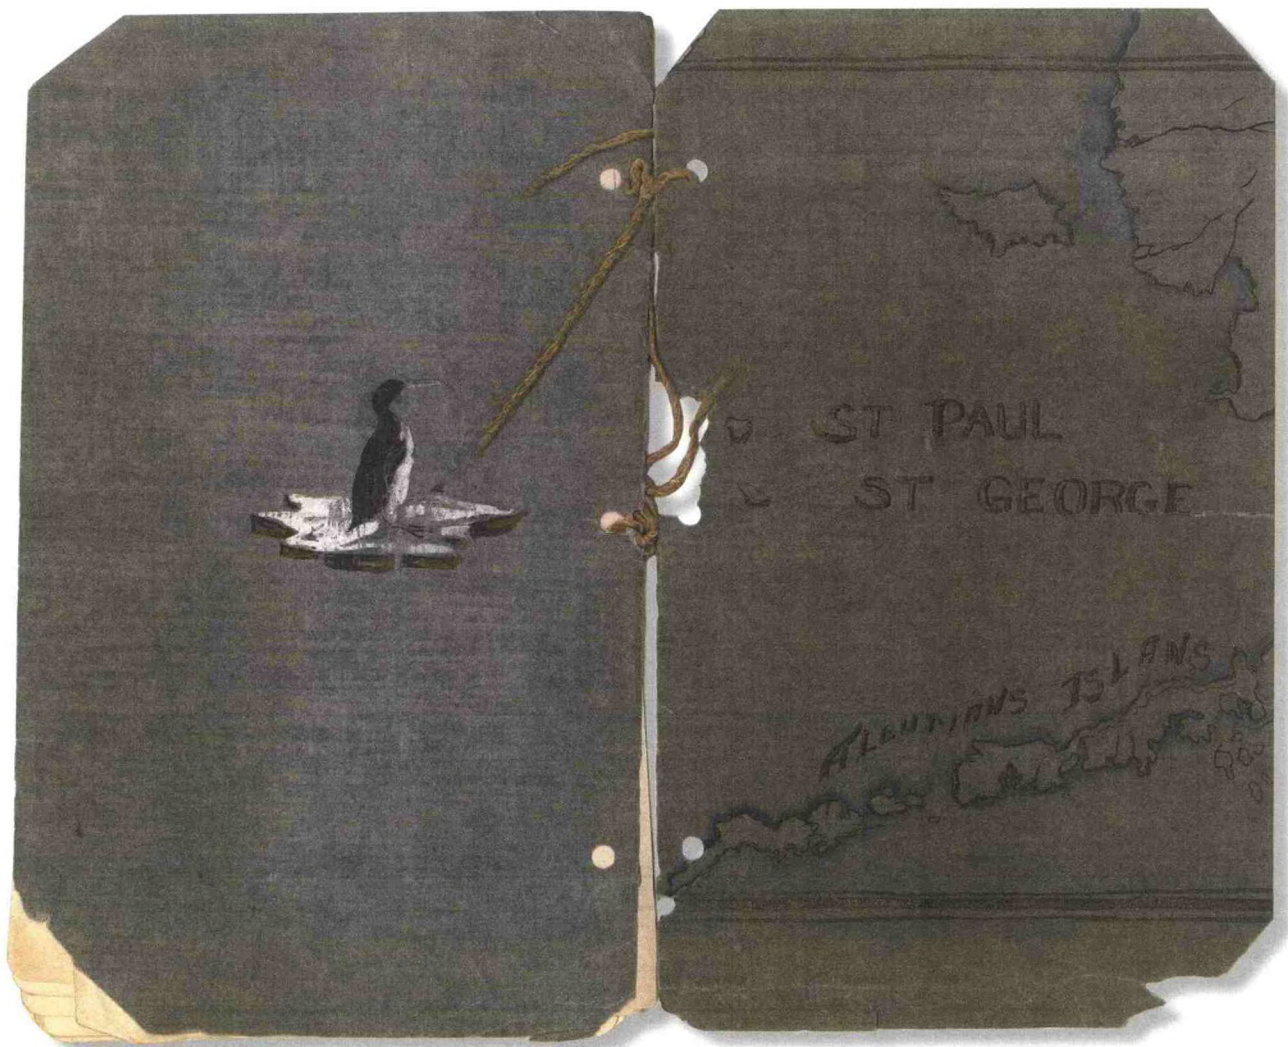 ST PAUL
ST GEORGE
ALEUTIANS ISLANS